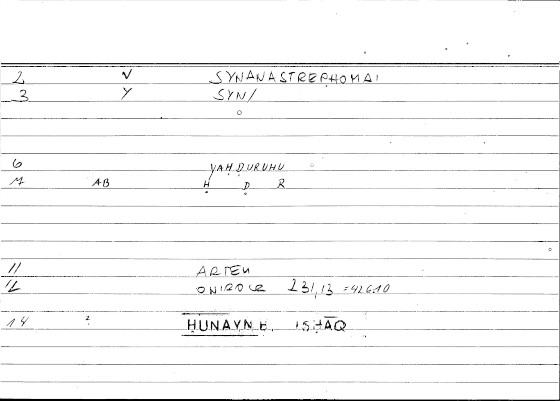 2 V SYNANASTREPHOMAI
3 Y SYN/
6 YAḤḌURUHU
M AB Ḥ Ḍ R
11 ARTEM
12 ONIROCR 231,13 =426.10
14 2 ḤUNAYN B. ISḤĀQ